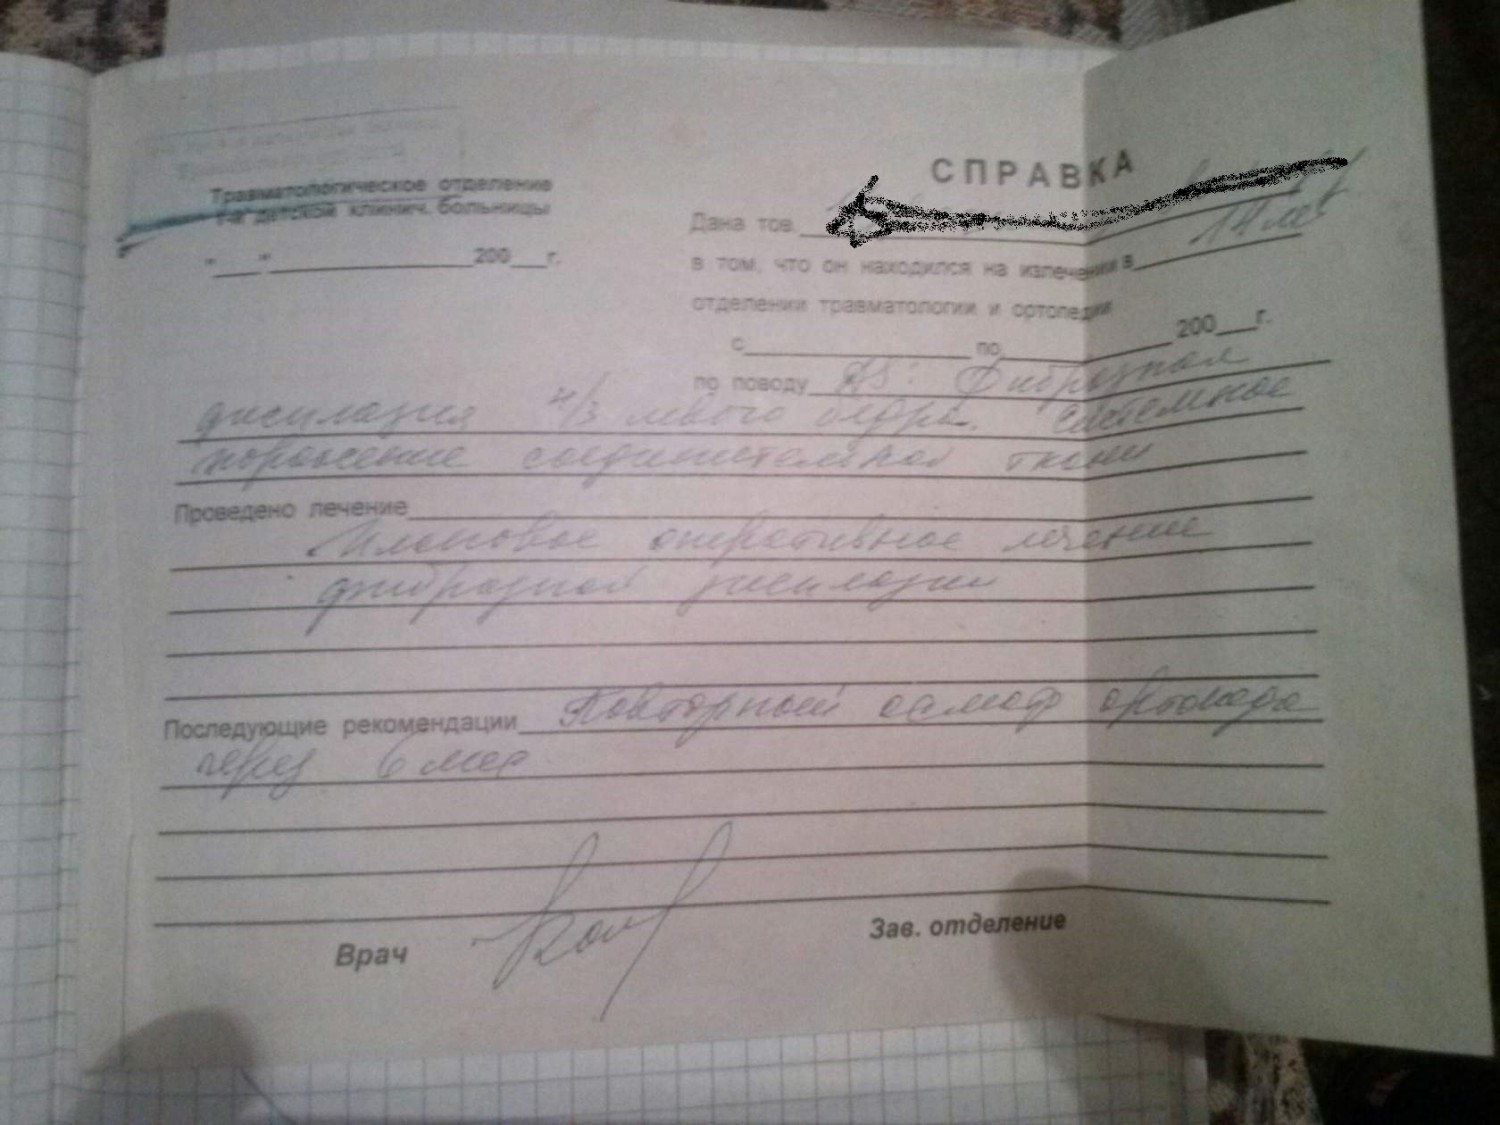 СПРАВКА
Травматологическое отделение
детской клинич. больницы
"___" ____________200___г.
Дана тов.
14 лет
в том, что он находился на излечении в
отделении травматологии и ортопедии
с____________ по____________200___г.
по поводу DS: Фиброзная
дисплазия н/3 левого бедра. Системное
поражение соединительной ткани
Проведено лечение
Плановое оперативное лечение
фиброзной дисплазии
Последующие рекомендации Повторный осмотр ортопеда
через 6 мес
Врач
Зав. отделение